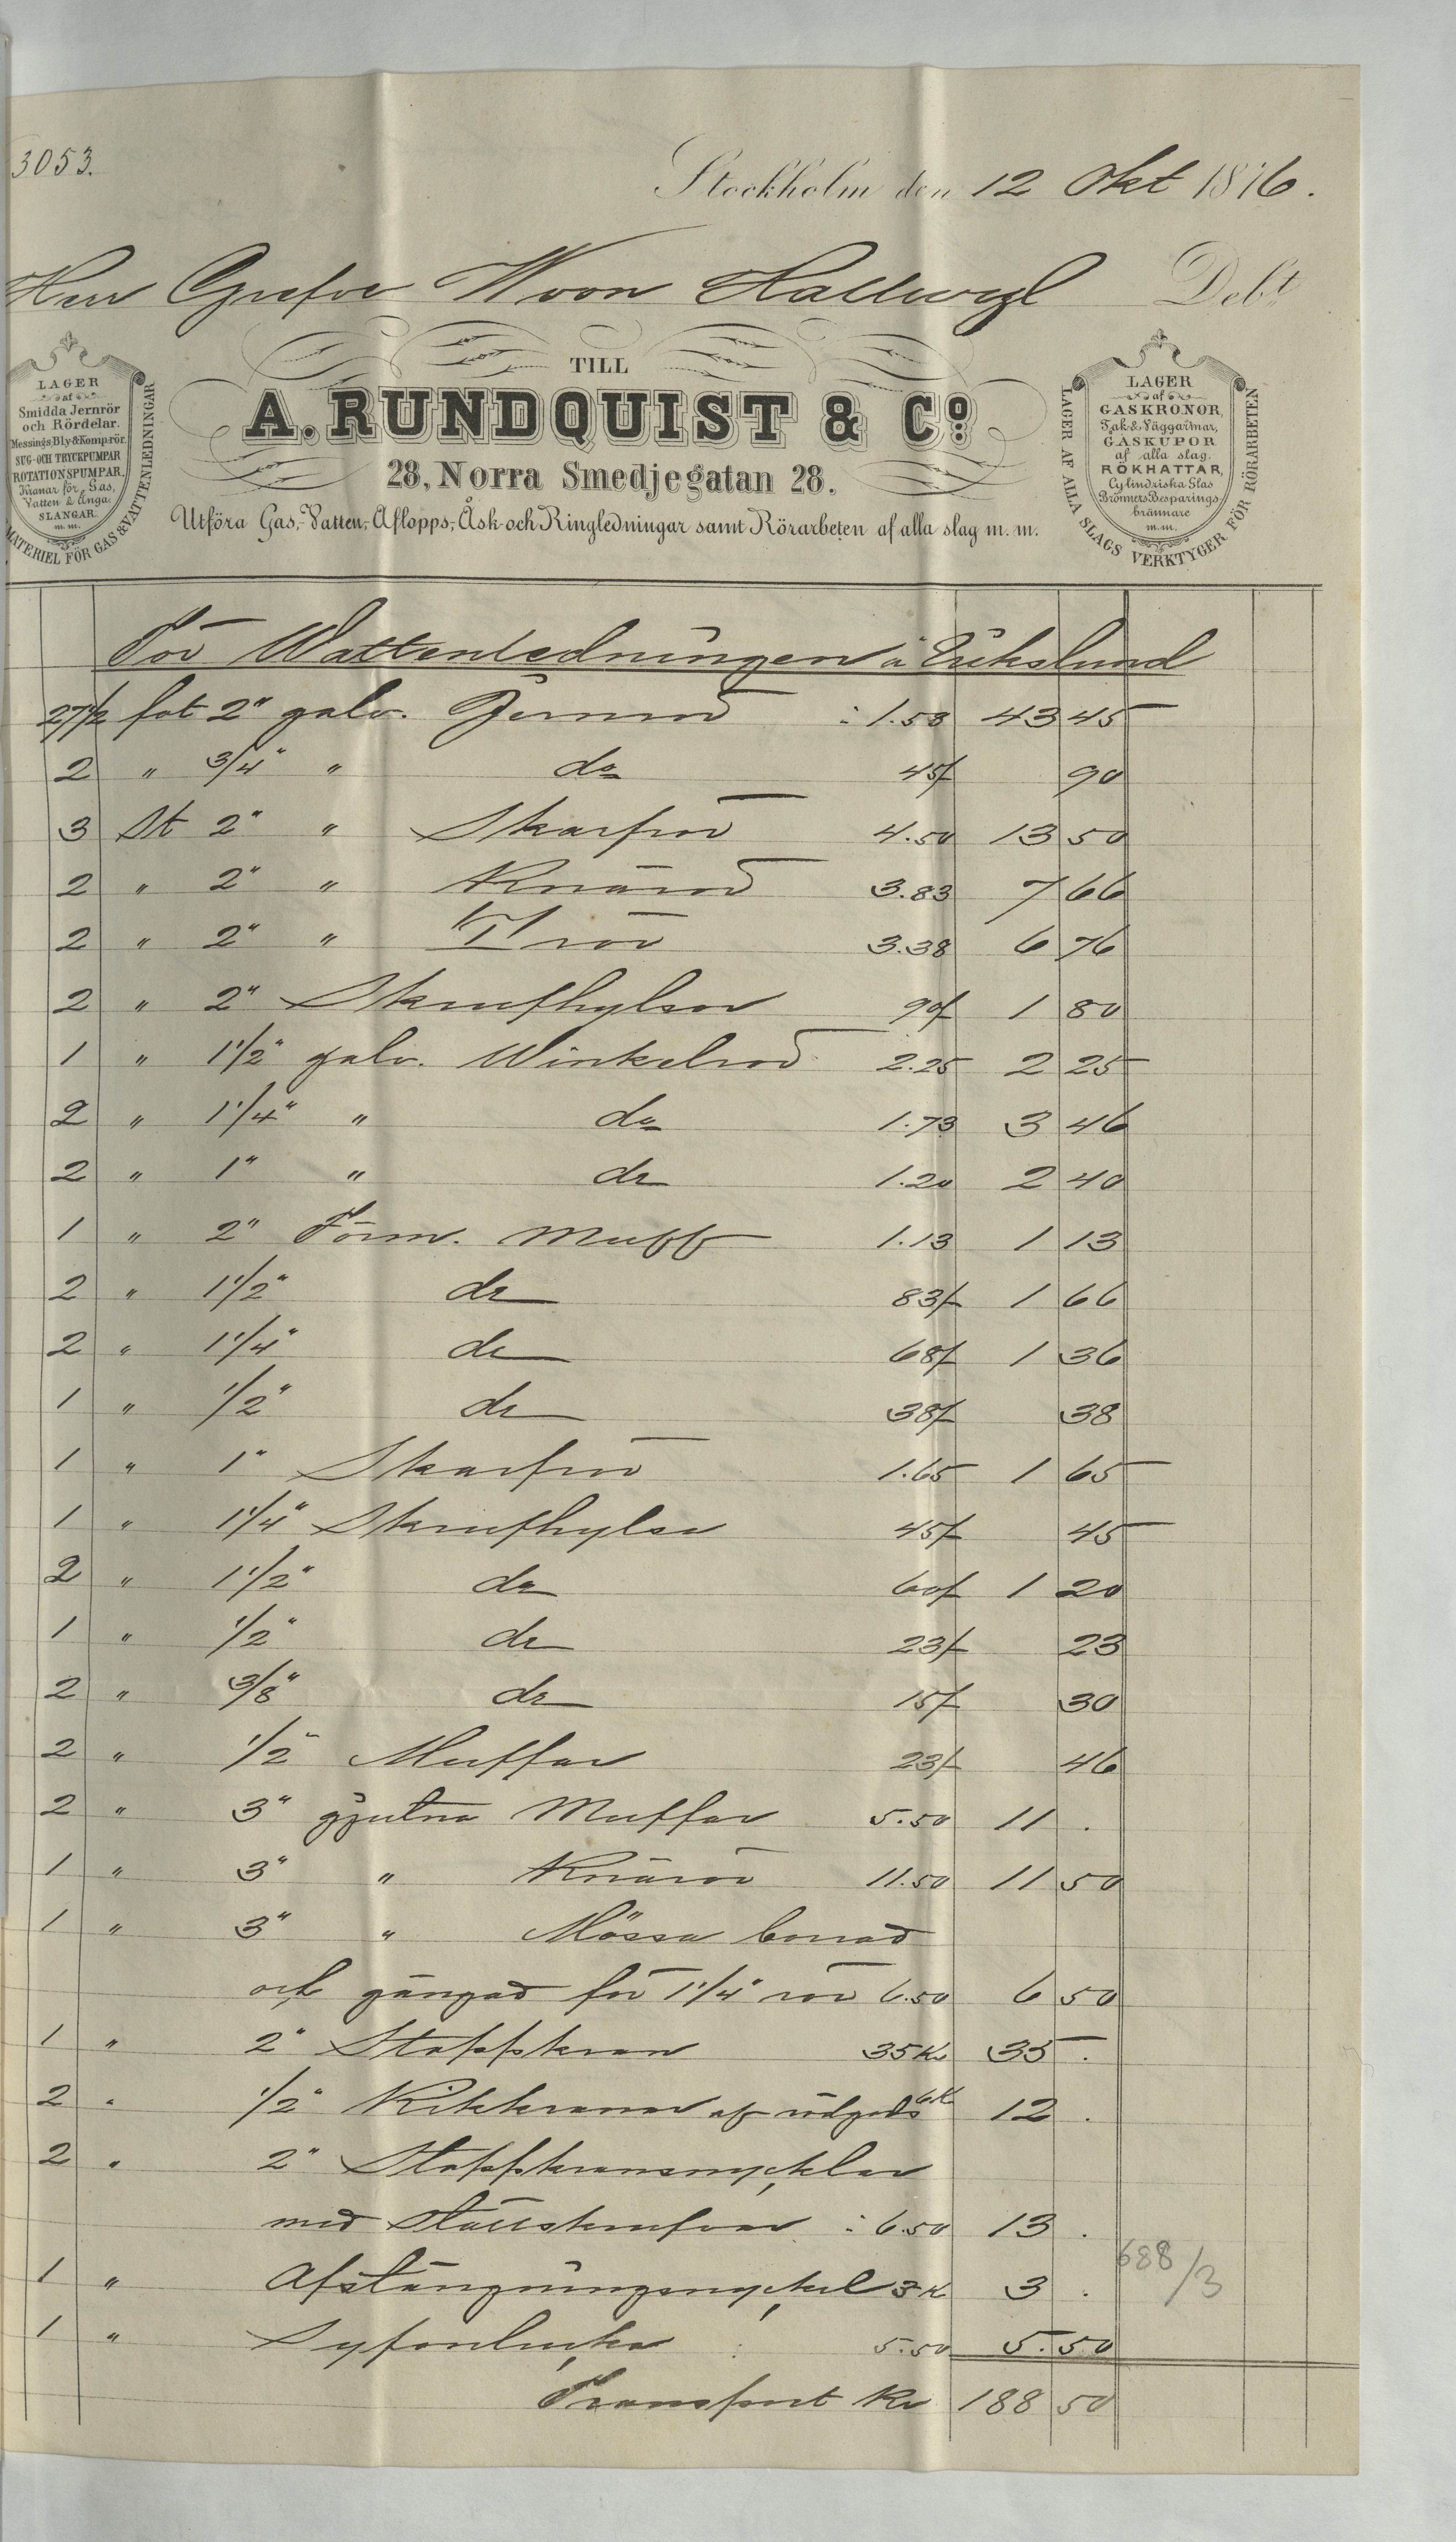 3053.
Stockholm den 12 Okt 1876.
Herr Grefve W von Hallwyl Debt
LAGER
af
Smidda Jernrör
och Rördelar.
Messings, Bly- & Komp. rör.
SUG- OCH TRYCKPUMPAR
ROTATIONSPUMPAR,
Kranar för Gas,
Vatten & Ånga,
SLANGAR
m. m.
MATERIEL FÖR GAS & VATTENLEDNINGAR
TILL
A. RUNDQUIST & Co.
28, Norra Smedjegatan 28.
Utföra Gas-, Vatten-, Aflopps-, Åsk- och Ringledningar samt Rörarbeten af alla slag m. m.
LAGER
af
GASKRONOR,
Tak- & Väggarmar,
GASKUPOR
af alla slag.
RÖKHATTAR,
Cylindriska Glas
Brönners Besparings-
brännare
m.m.
LAGER AF ALLA SLAGS VERKTYGER FÖR RÖRARBETEN
För Wattenledningen å Erikslund
27 1/2 fot 2" galv. Jernrör : 1.58 43 45
2 " 3/4" " do 45f 90
3 St 2" " Skarfrör 4.50 13 50
2 " 2" " Knärör 3.83 7 66
2 " 2" " T rör 3.38 6 76
2 " 2" Skrufhylsor 90f 1 80
1 " 1 1/2" galv. Winkelrör 2.25 2 25
2 " 1 1/4" " do 1.73 3 46
2 " 1" " do 1.20 2 40
1 " 2" Förm. Muff 1.13 1 13
2 " 1 1/2" do 83f 1 66
2 " 1 1/4" do 68f 1 36
1 " 1/2" do 38f 38
1 " 1" Skarfrör 1.65 1 65
1 " 1 1/4" Skrufhylsa 45f 45
2 " 1 1/2" do 60f 1 20
1 " 1/2" do 23f 23
2 " 3/8" do 15f 30
2 " 1/2" Muffar 23f 46
2 " 3" gjutna Muffar 5.50 11 .
1 " 3" " Knärör 11.50 11 50
1 " 3" " Mössa borrad
och gängad för 1 1/4" rör 6.50 6 50
1 " 2" Stoppkran 35 Kr 35 .
2 " 1/2" Kikkranar af rödgods 6 K 12 .
2 " 2" Stoppkransnycklar
med ställskrufvar : 6.50 13 .
1 " Afstängningsnyckel 3 K 3 .
1 " Syfonlucka : 5.50 5.50
688/3
Transport Kr 188 50